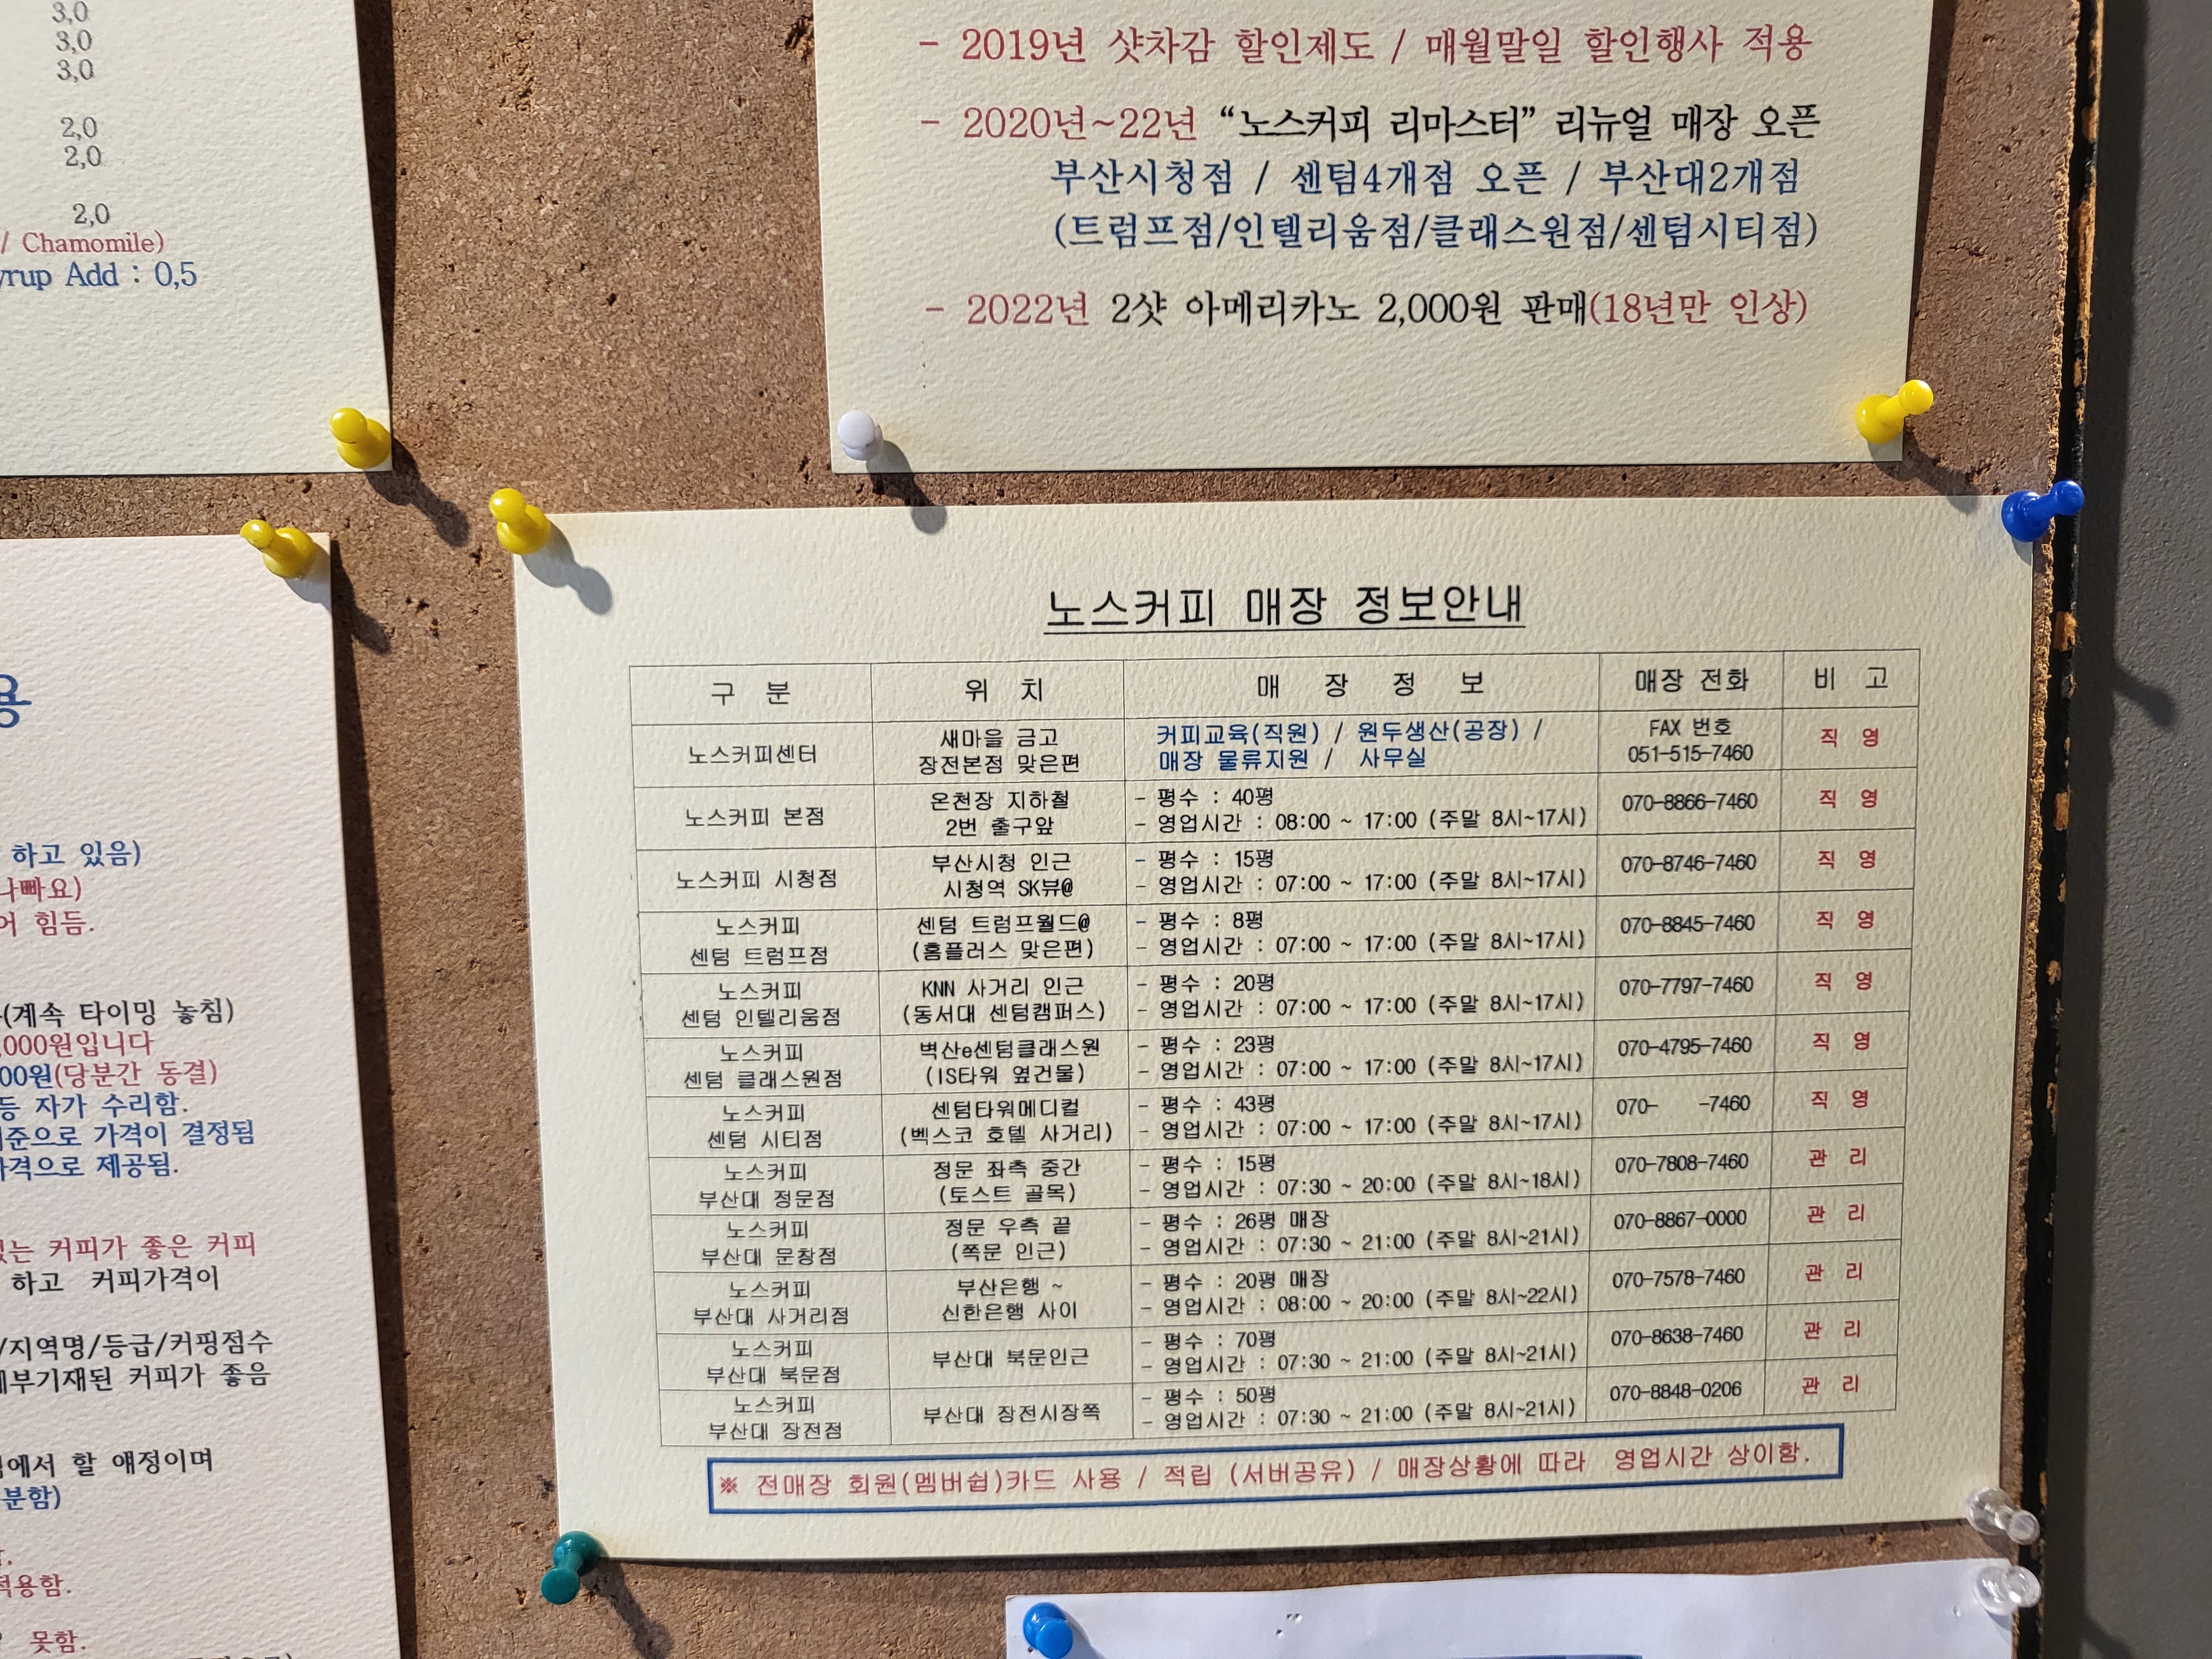 3,0
3,0
3,0
2,0
2,0
2,0
/ Chamomile)
yrup Add : 0,5
- 2019년 샷차감 할인제도 / 매월말일 할인행사 적용
- 2020년~22년 “노스커피 리마스터” 리뉴얼 매장 오픈
부산시청점 / 센텀4개점 오픈 / 부산대2개점
(트럼프점/인텔리움점/클래스원점/센텀시티점)
- 2022년 2샷 아메리카노 2,000원 판매(18년만 인상)
용
하고 있음)
나빠요)
어 힘듬.
(계속 타이밍 놓침)
,000원입니다
00원(당분간 동결)
등 자가 수리함.
준으로 가격이 결정됨
가격으로 제공됨.
없는 커피가 좋은 커피
하고 커피가격이
/지역명/등급/커핑점수
세부기재된 커피가 좋음
에서 할 얘정이며
분함)
적용함.
못함.
노스커피 매장 정보안내
구 분 위 치 매 장 정 보 매장 전화 비 고
노스커피센터 새마을 금고 장전본점 맞은편 커피교육(직원) / 원두생산(공장) / 매장 물류지원 / 사무실 FAX 번호 051-515-7460 직 영
노스커피 본점 온천장 지하철 2번 출구앞 - 평수 : 40평 - 영업시간 : 08:00 ~ 17:00 (주말 8시~17시) 070-8866-7460 직 영
노스커피 시청점 부산시청 인근 시청역 SK뷰@ - 평수 : 15평 - 영업시간 : 07:00 ~ 17:00 (주말 8시~17시) 070-8746-7460 직 영
노스커피 센텀 트럼프점 센텀 트럼프월드@ (홈플러스 맞은편) - 평수 : 8평 - 영업시간 : 07:00 ~ 17:00 (주말 8시~17시) 070-8845-7460 직 영
노스커피 센텀 인텔리움점 KNN 사거리 인근 (동서대 센텀캠퍼스) - 평수 : 20평 - 영업시간 : 07:00 ~ 17:00 (주말 8시~17시) 070-7797-7460 직 영
노스커피 센텀 클래스원점 벽산e센텀클래스원 (IS타워 옆건물) - 평수 : 23평 - 영업시간 : 07:00 ~ 17:00 (주말 8시~17시) 070-4795-7460 직 영
노스커피 센텀 시티점 센텀타워메디컬 (벡스코 호텔 사거리) - 평수 : 43평 - 영업시간 : 07:00 ~ 17:00 (주말 8시~17시) 070- -7460 직 영
노스커피 부산대 정문점 정문 좌측 중간 (토스트 골목) - 평수 : 15평 - 영업시간 : 07:30 ~ 20:00 (주말 8시~18시) 070-7808-7460 관 리
노스커피 부산대 문창점 정문 우측 끝 (쪽문 인근) - 평수 : 26평 매장 - 영업시간 : 07:30 ~ 21:00 (주말 8시~21시) 070-8867-0000 관 리
노스커피 부산대 사거리점 부산은행 ~ 신한은행 사이 - 평수 : 20평 매장 - 영업시간 : 08:00 ~ 20:00 (주말 8시~22시) 070-7578-7460 관 리
노스커피 부산대 북문점 부산대 북문인근 - 평수 : 70평 - 영업시간 : 07:30 ~ 21:00 (주말 8시~21시) 070-8638-7460 관 리
노스커피 부산대 장전점 부산대 장전시장쪽 - 평수 : 50평 - 영업시간 : 07:30 ~ 21:00 (주말 8시~21시) 070-8848-0206 관 리
※ 전매장 회원(멤버쉽)카드 사용 / 적립 (서버공유) / 매장상황에 따라 영업시간 상이함.